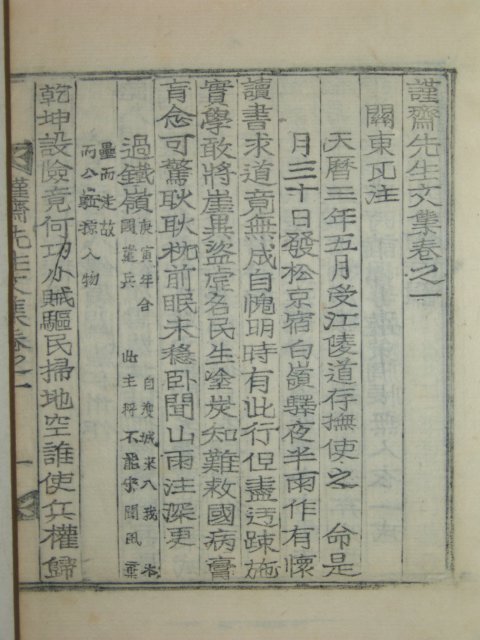 謹齋先生文集卷之一
關東瓦注
天曆三年五月受江陵道存撫使之 命是
月三十日發松京宿白嶺驛夜半雨作有懷
讀書求道竟無成自愧明時有此行但盡迂疎施
實學敢將崖異盜虛名民生塗炭知難救國病膏
肓念可驚耿耿枕前眠未穩臥聞山雨注深更
過鐵嶺
庚寅年合
國 兵
自 城來入我
主將不能守聞風棄
壘而走故
而公 掠人物
乾坤設險竟何功小賊驅民掃地空誰使兵權歸
謹齋先生文集卷之一
一